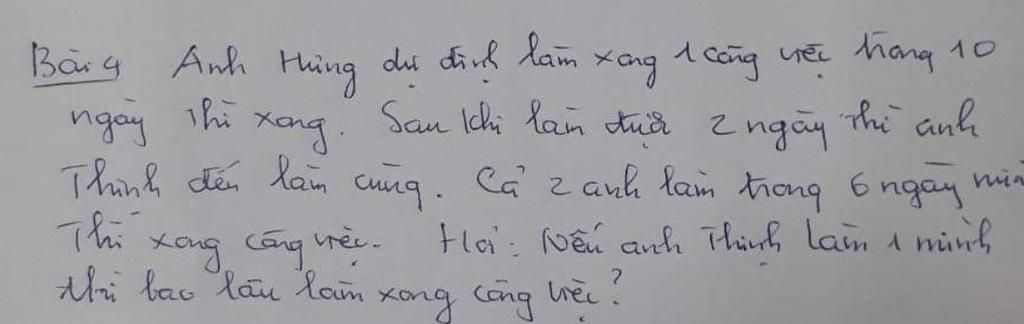 Bài 4 Anh Hùng dự định làm xong 1 công việc trong 10
ngày thì xong. Sau khi làm được 2 ngày thì anh
Thịnh đến làm cùng. Cả 2 anh làm trong 6 ngày nữa
Thì xong công việc. Hỏi: Nếu anh Thịnh làm 1 mình
thì bao lâu làm xong công việc?